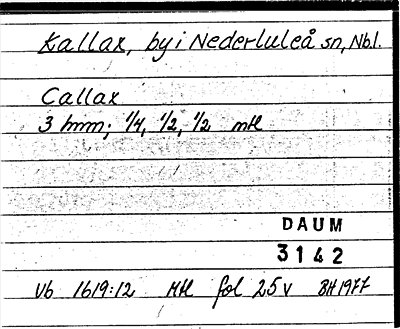 Kallax, by i Nederluleå sn, Nbl.
Callax
3 hmm; 1/4, 1/2, 1/2 mtl
DAUM
3142
Vb 1619:12 Mtl fol 25 v BH 1977